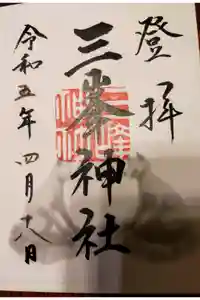 登拝
三峯神社
令和五年四月十八日